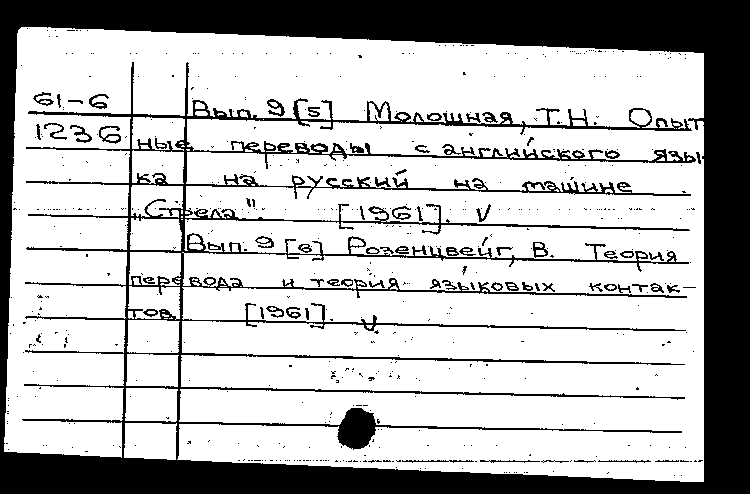 61-6
Вып. 9 [5] Молошная, Т.Н. Опыт
1236 ные переводы с английского язы
ка на русский на машине
„Стрела". [1961]. V
Вып. 9 [6] Розенцвейг, В. Теория
перевода и теория языковых контак-
тов [1961]. V